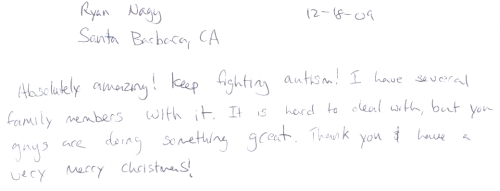 Ryan Nagy 12-18-09
Santa Barbara, CA
Absolutely amazing! Keep fighting autism! I have several
family members with it. It is hard to deal with, but you
guys are doing something great. Thank you & have a
very merry christmas!